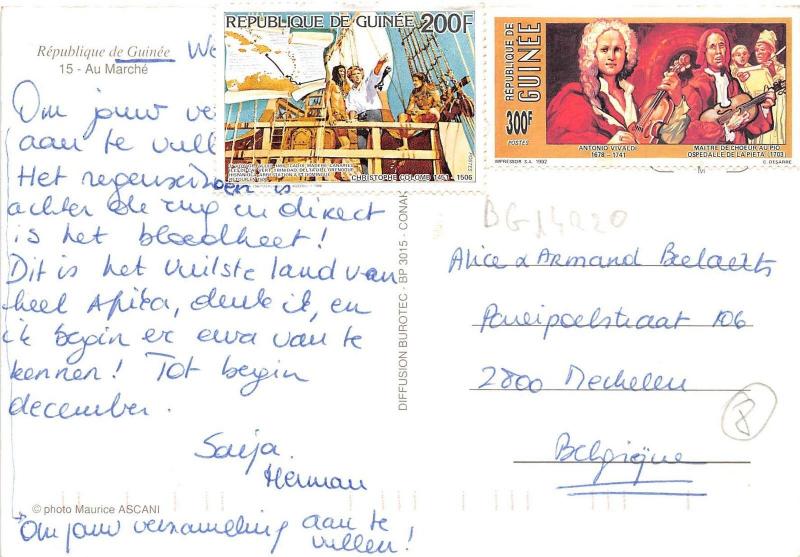 République de Guinée
15 - Au Marché
We
Om jouw ve
aan te vulle
Het regenseizoen is
achter de rug en direct
is het bloedheet!
Dit is het vuilste land van
heel Afrika, denk ik, en
ik begin er erva van te
kennen! Tot begin
december.
Saija
Herman
© photo Maurice ASCANI
*Om jouw verzameling aan te
vullen!
DIFFUSION BUROTEC - BP 3015 - CONAK
REPUBLIQUE DE GUINÉE 200F
POSTES
CHRISTOPHE COLOMB 1451 - 1506
REPUBLIQUE DE
GUINÉE
300F
POSTES
ANTONIO VIVALDI
1678 - 1741
MAITRE DE CHOEUR AU PIO
OSPEDALLE DE LA PIETA (1703)
IMPRESSOR S.A. 1992
G. DESARRE
BG14220
Alice & Armand Beelaerts
Paneipoelstraat 106
2800 Mechelen
Belgique
8